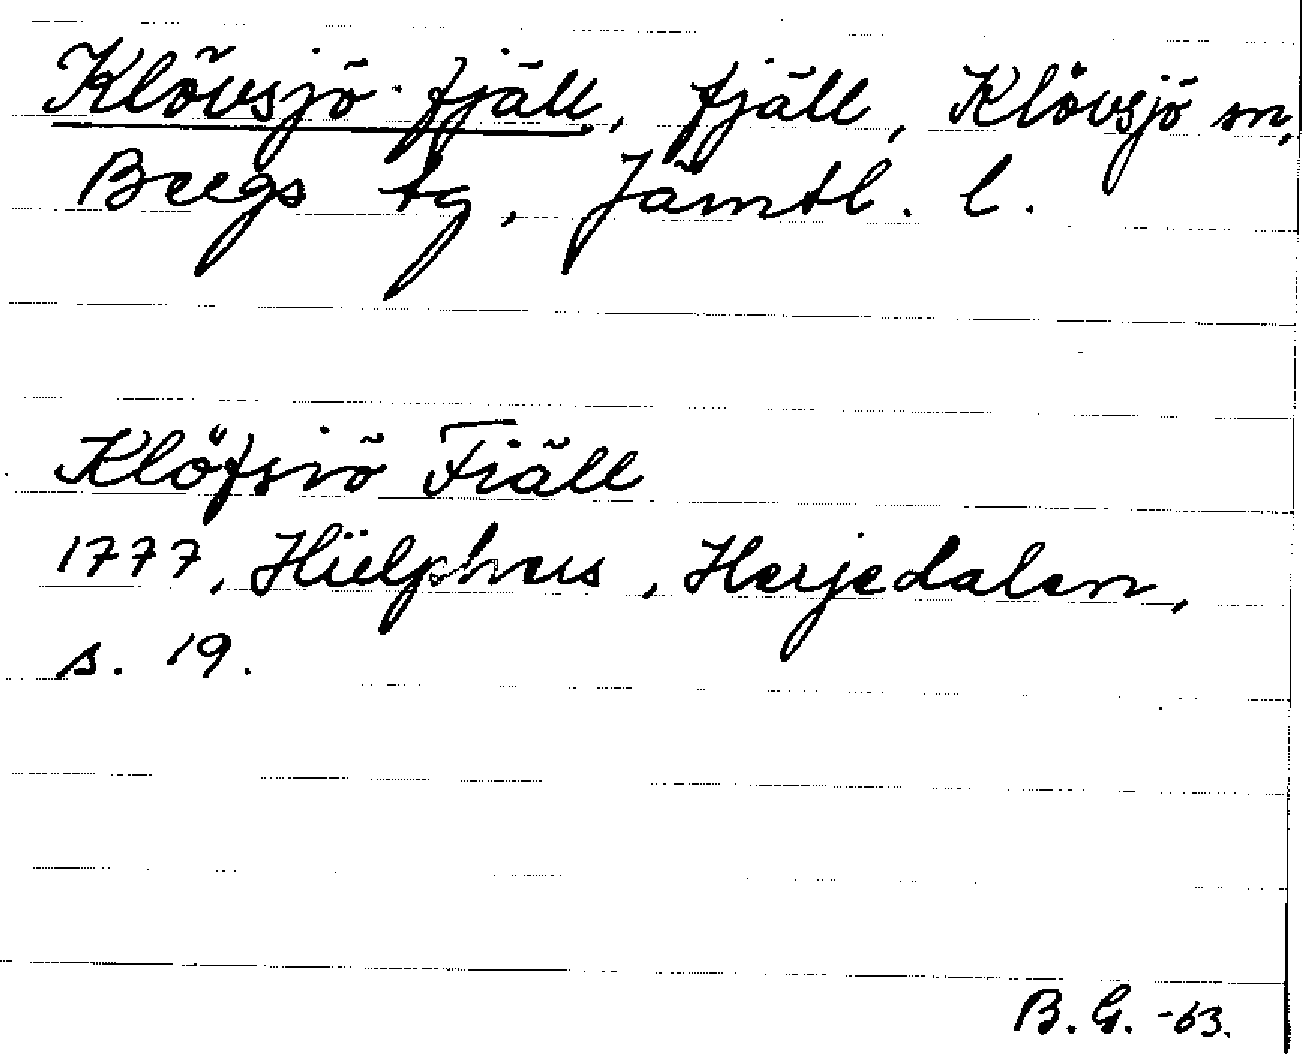 Klövsjö fjäll, fjäll, Klövsjö sn,
Bergs tg, Jämtl. l.
Klöfsiö Fiäll
1777, Hülphers, Herjedalen,
s. 19.
B. G. -63.